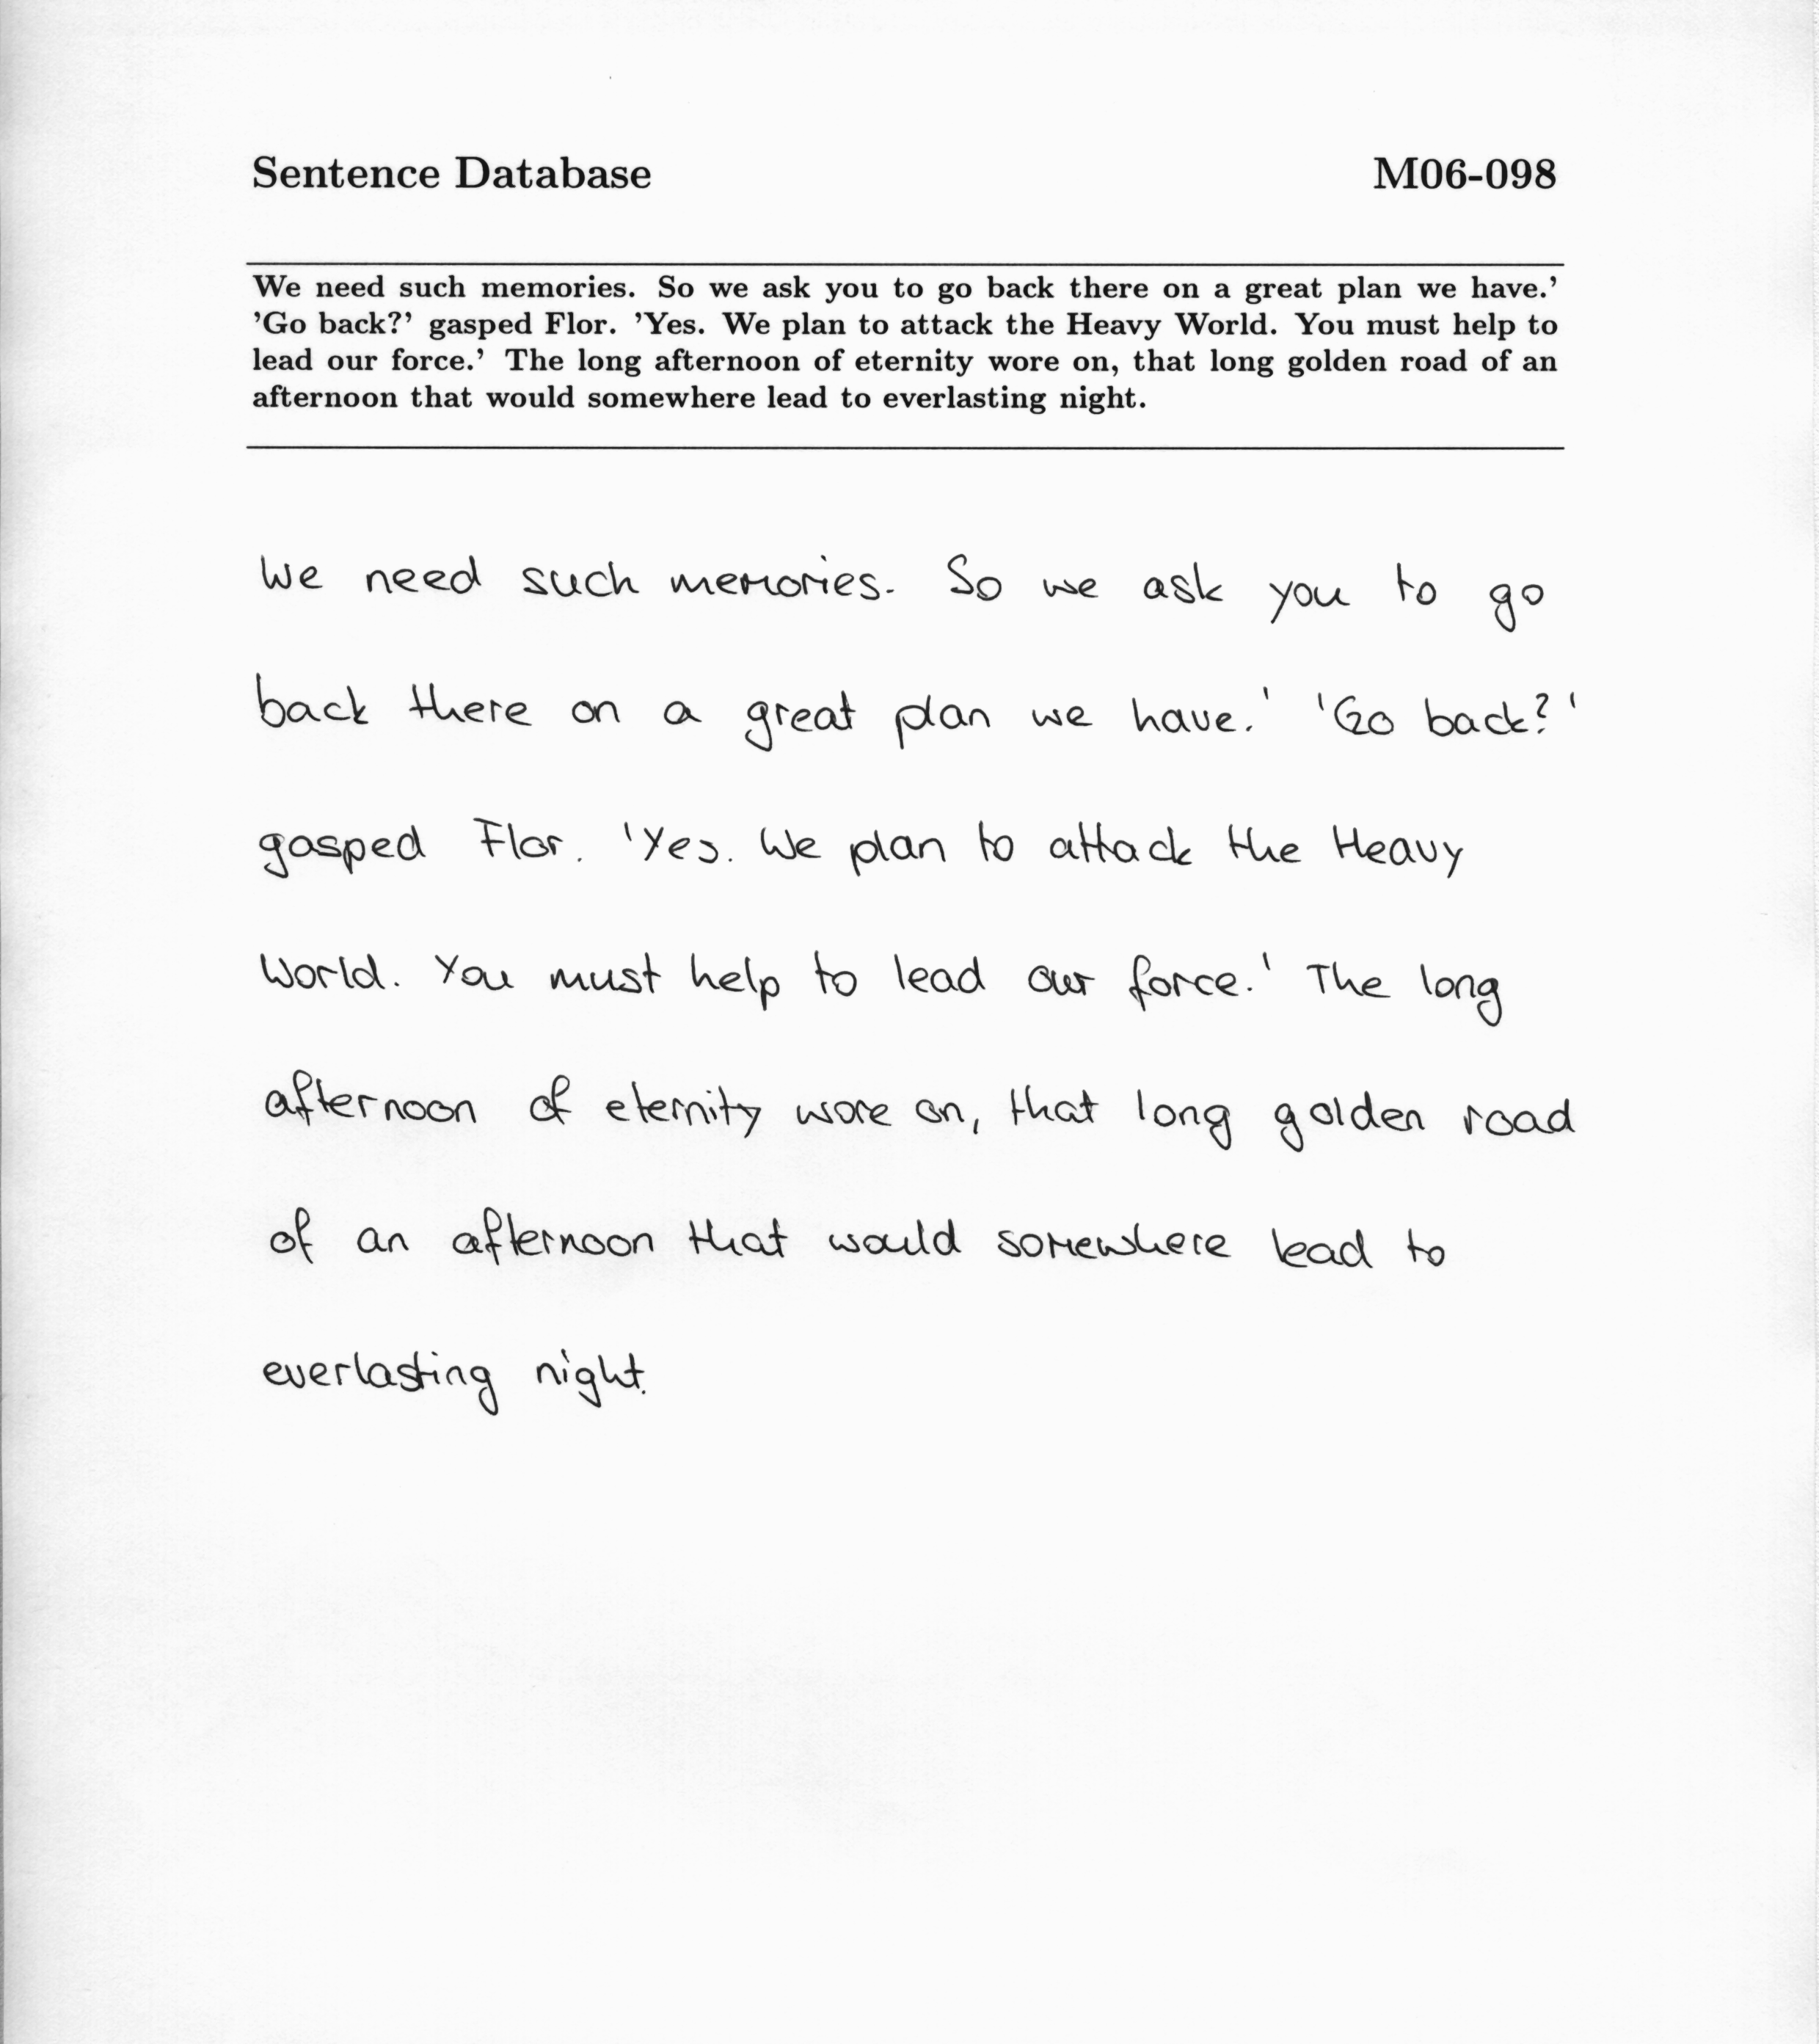 Sentence Database M06-098
We need such memories. So we ask you to go back there on a great plan we have.’
’Go back?’ gasped Flor. ’Yes. We plan to attack the Heavy World. You must help to
lead our force.’ The long afternoon of eternity wore on, that long golden road of an
afternoon that would somewhere lead to everlasting night.
We need such memories. So we ask you to go
back there on a great plan we have.' 'Go back?'
gasped Flor. 'Yes. We plan to attack the Heavy
World. You must help to lead our force.' The long
afternoon of eternity wore on, that long golden road
of an afternoon that would somewhere lead to
everlasting night.